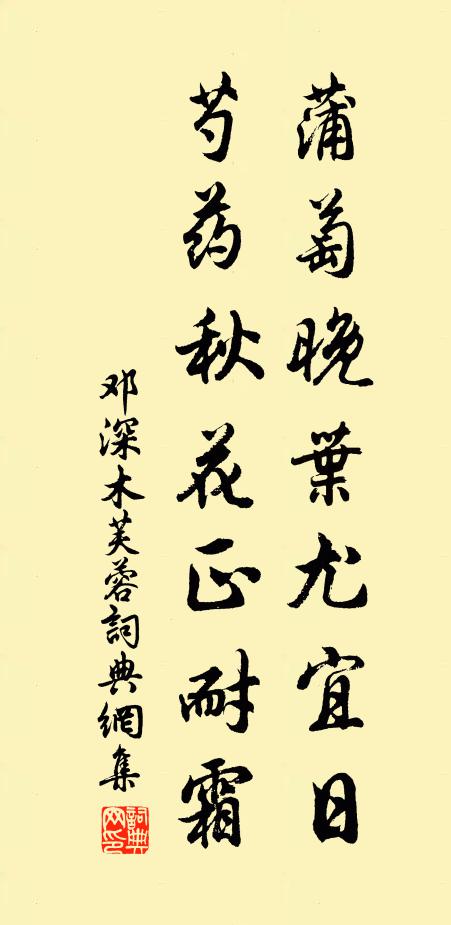 蒲萄晚葉尤宜日
芍药秋花正耐霜
邓深木芙蓉詞典網集
詞典网印